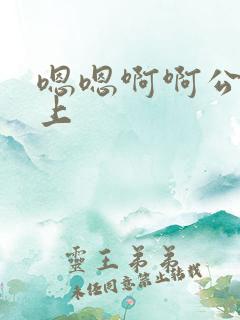 嗯嗯啊啊公
上
靈王弟弟
未经同意禁止转载